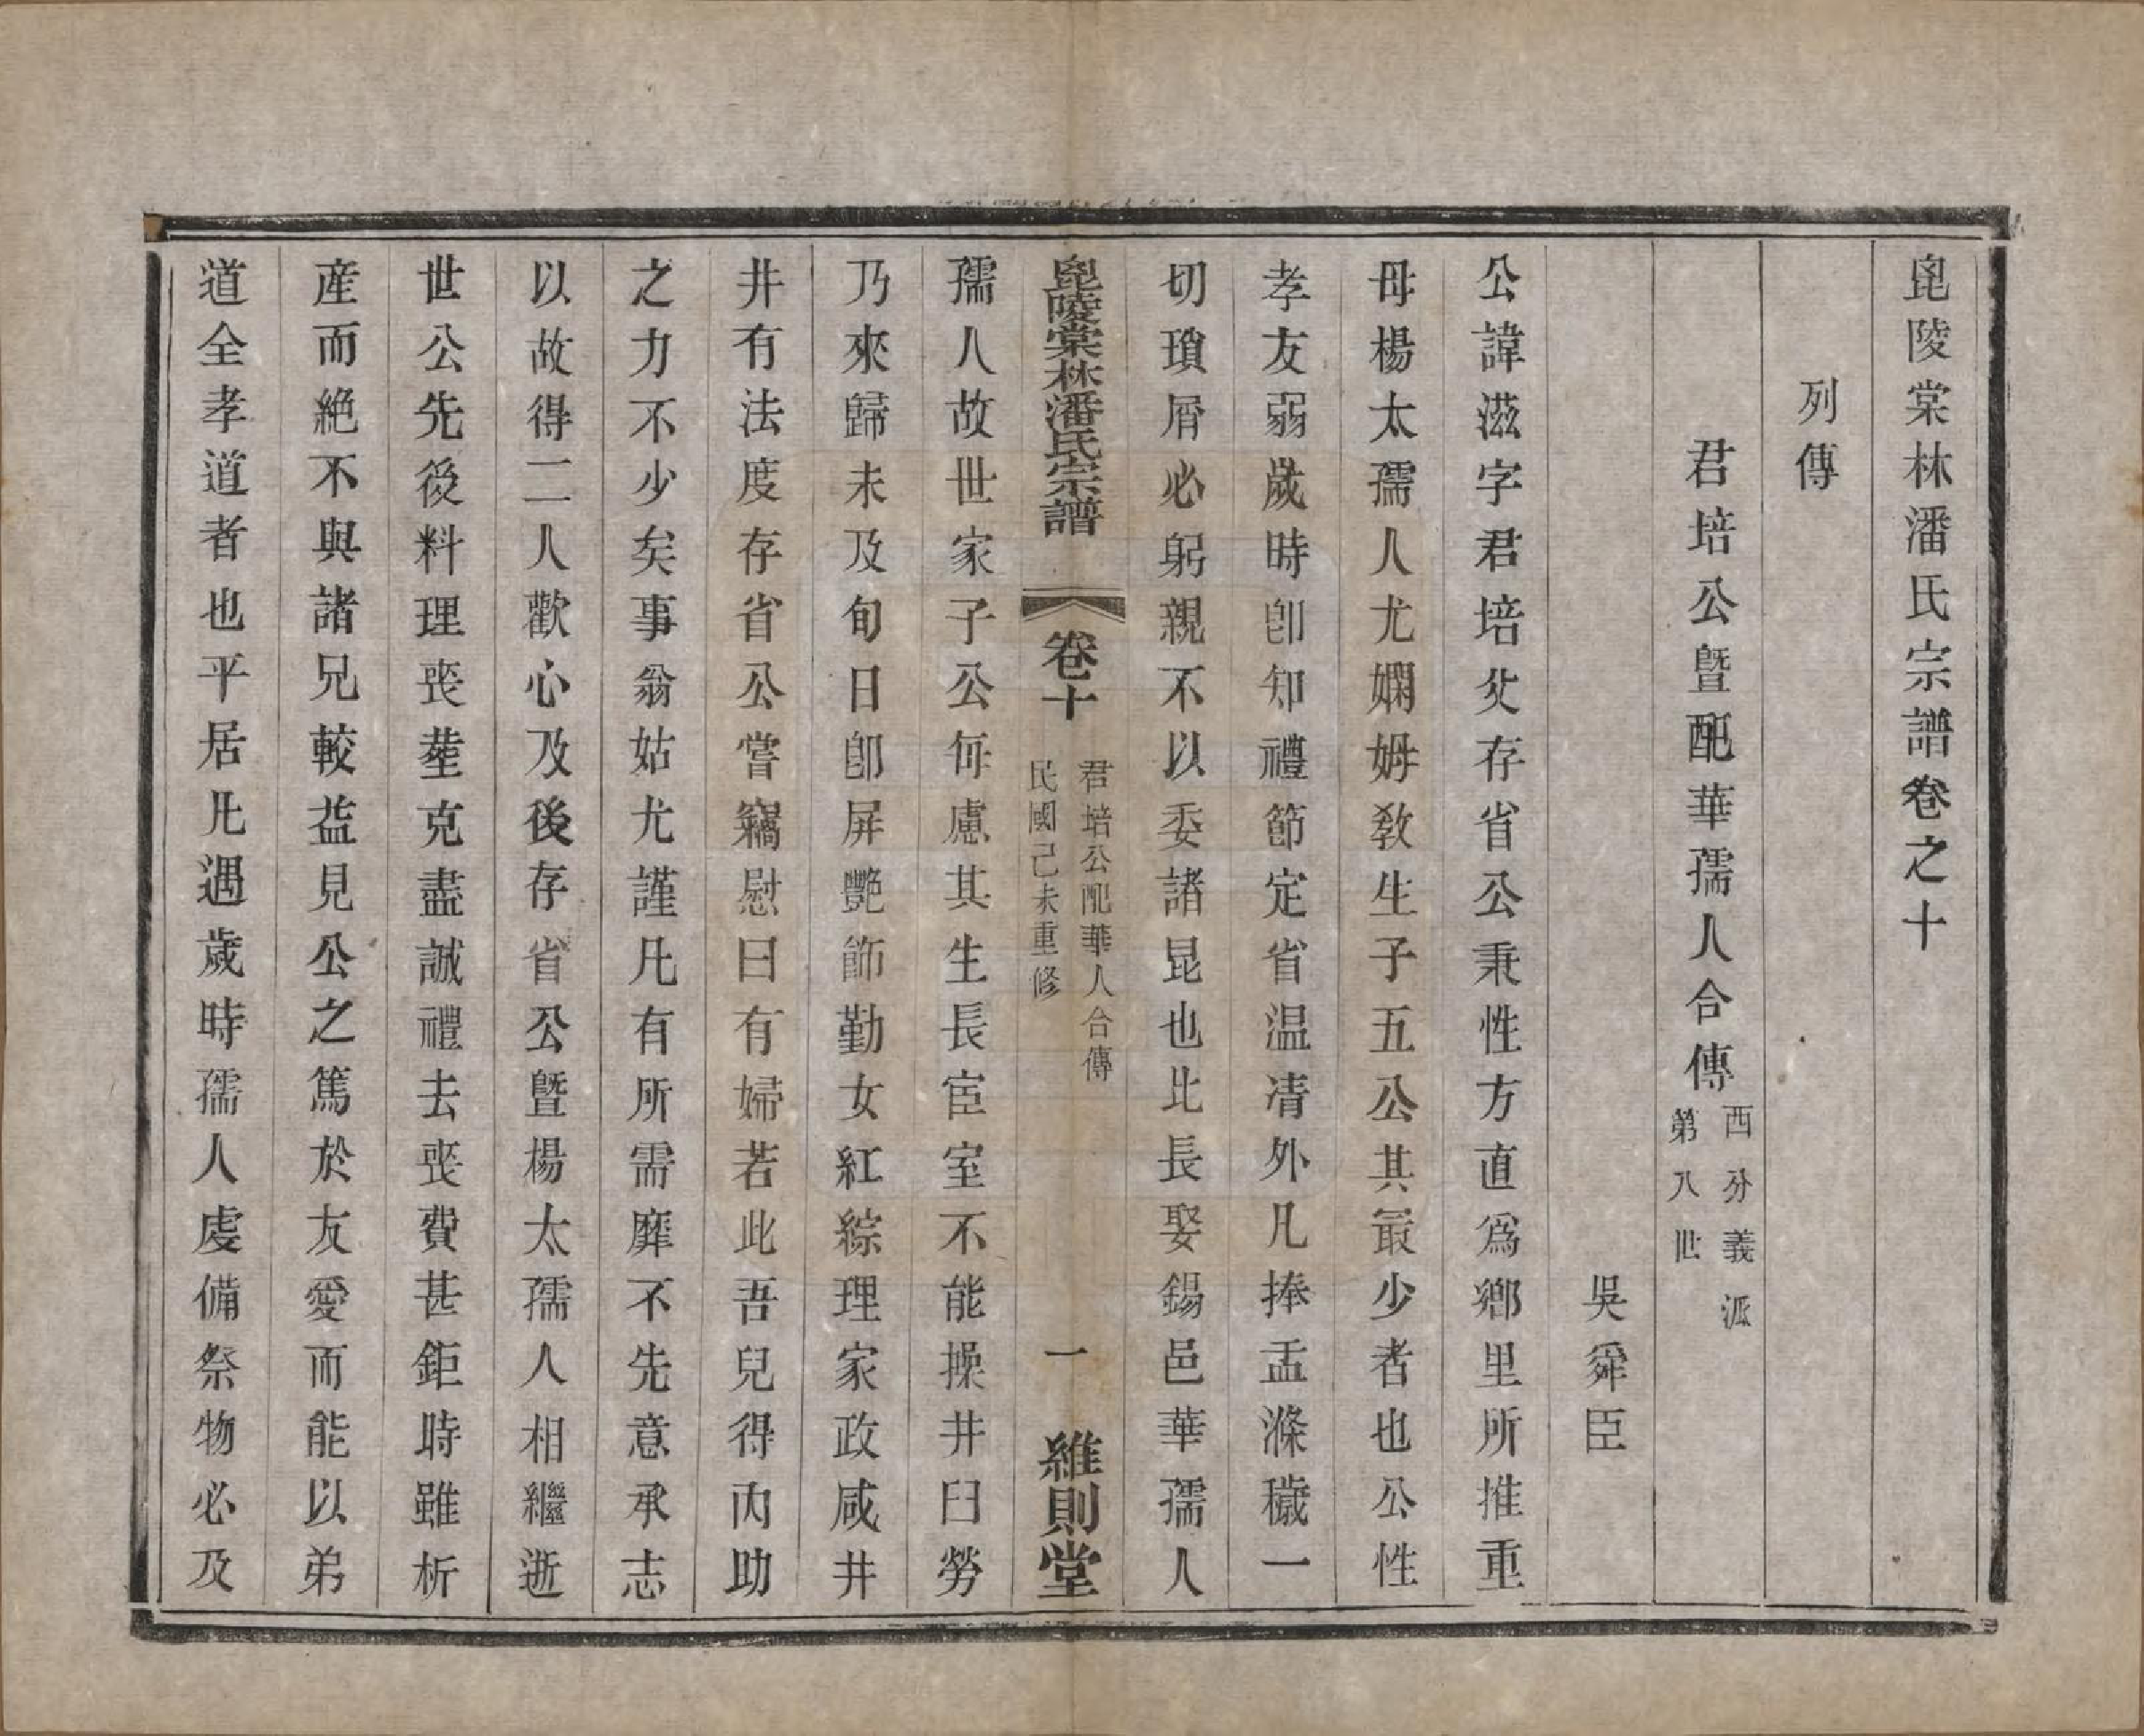 毘陵棠林潘氏宗譜卷之十
列傳
君培公暨配華孺人合傳
西分義派
第八世
吳舜臣
公諱滋字君培父存省公秉性方直爲鄉里所推重
母楊太孺人尤嫻姆敎生子五公其最少者也公性
孝友弱歲時卽知禮節定省温凊外凡捧盂滌穢一
切瑣屑必躬親不以委諸昆也比長娶錫邑華孺人
毘陵棠林潘氏宗譜
卷十
君培公配華人合傳
民國己未重修
一
維則堂
孺人故世家子公每慮其生長宦室不能操井臼勞
乃來歸未及旬日卽屏艷飾勤女紅綜理家政咸井
井有法度存省公嘗竊慰曰有婦若此吾兒得內助
之力不少矣事翁姑尤謹凡有所需靡不先意承志
以故得二人歡心及後存省公暨楊太孺人相繼逝
世公先後料理喪葬克盡誠禮去喪費甚鉅時雖析
產而絕不與諸兄較益見公之篤於友愛而能以弟
道全孝道者也平居凡遇歲時孺人虔備祭物必及